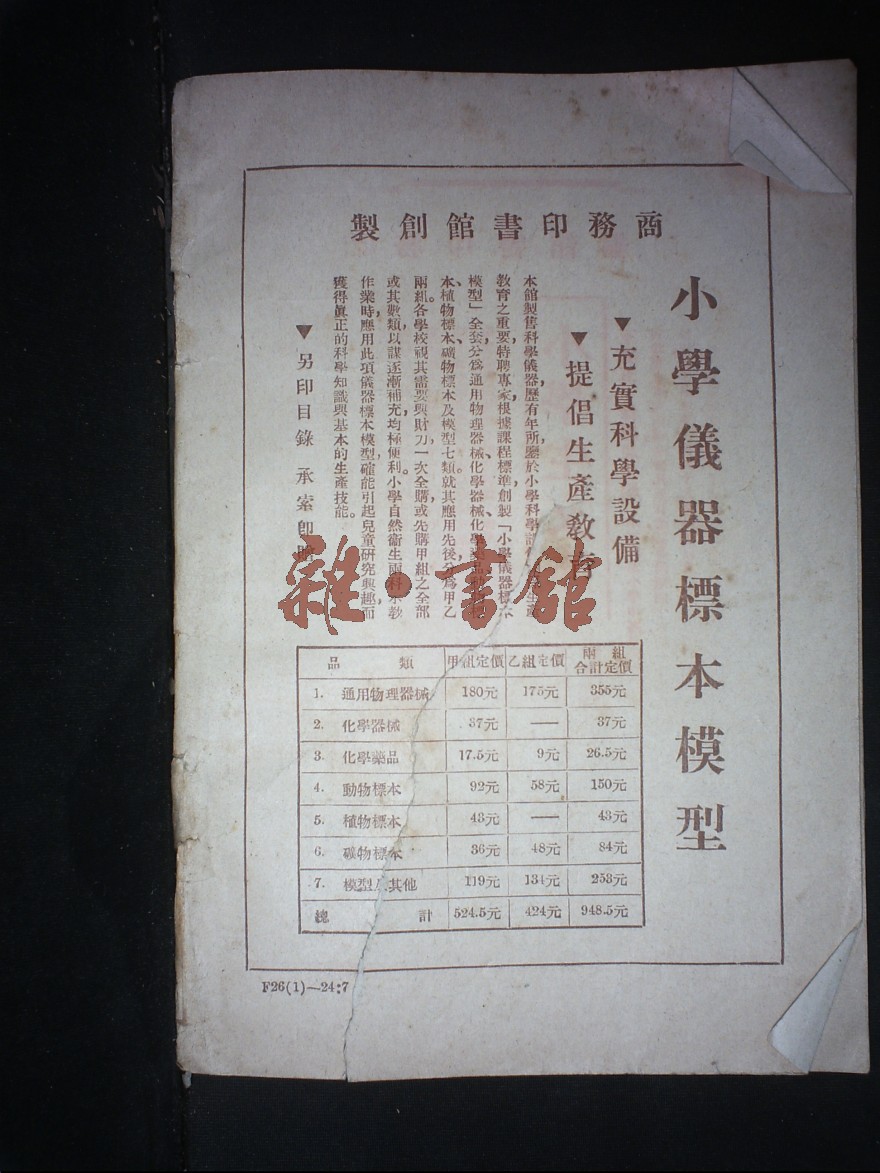 商務印書館創製
小學儀器標本模型
▼充實科學設備
▼提倡生產教育
本館製售科學儀器,歷有年所,鑒於小學科學設
教育之重要,特聘專家,根據課程標準,創製「小學儀器標本
模型」全套,分爲通用物理器械、化學器械、化學藥品、動物標
本、植物標本、礦物標本及模型七類,就其應用先後,分爲甲乙
兩組。各學校視其需要與財力,一次全購,或先購甲組之全部
或其數類,以謀逐漸補充,均極便利。小學自然衞生兩科示教
作業時,應用此項儀器標本模型,確能引起兒童研究興趣,而
獲得眞正的科學知識與基本的生產技能。
▼另印目錄 承索卽贈
品類 甲組定價 乙組定價 兩組合計定價
1. 通用物理器械 180元 175元 355元
2. 化學器械 37元 — 37元
3. 化學藥品 17.5元 9元 26.5元
4. 動物標本 92元 58元 150元
5. 植物標本 43元 — 43元
6. 礦物標本 36元 48元 84元
7. 模型及其他 119元 134元 253元
總計 524.5元 424元 948.5元
F26(1)—24:7
雜·書館